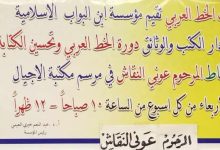 الخط العربي تقيم مؤسسة ابن البواب الاسلامية
دار الكتب والوثائق دورة الخط العربي وتحسين الكتابة
المرحوم عوني النقاش في مرسم مكتبة الاجيال
من كل اسبوع من الساعة ١٠ صباحاً - ١٢ ظهراً
المرحوم عوني النقاش